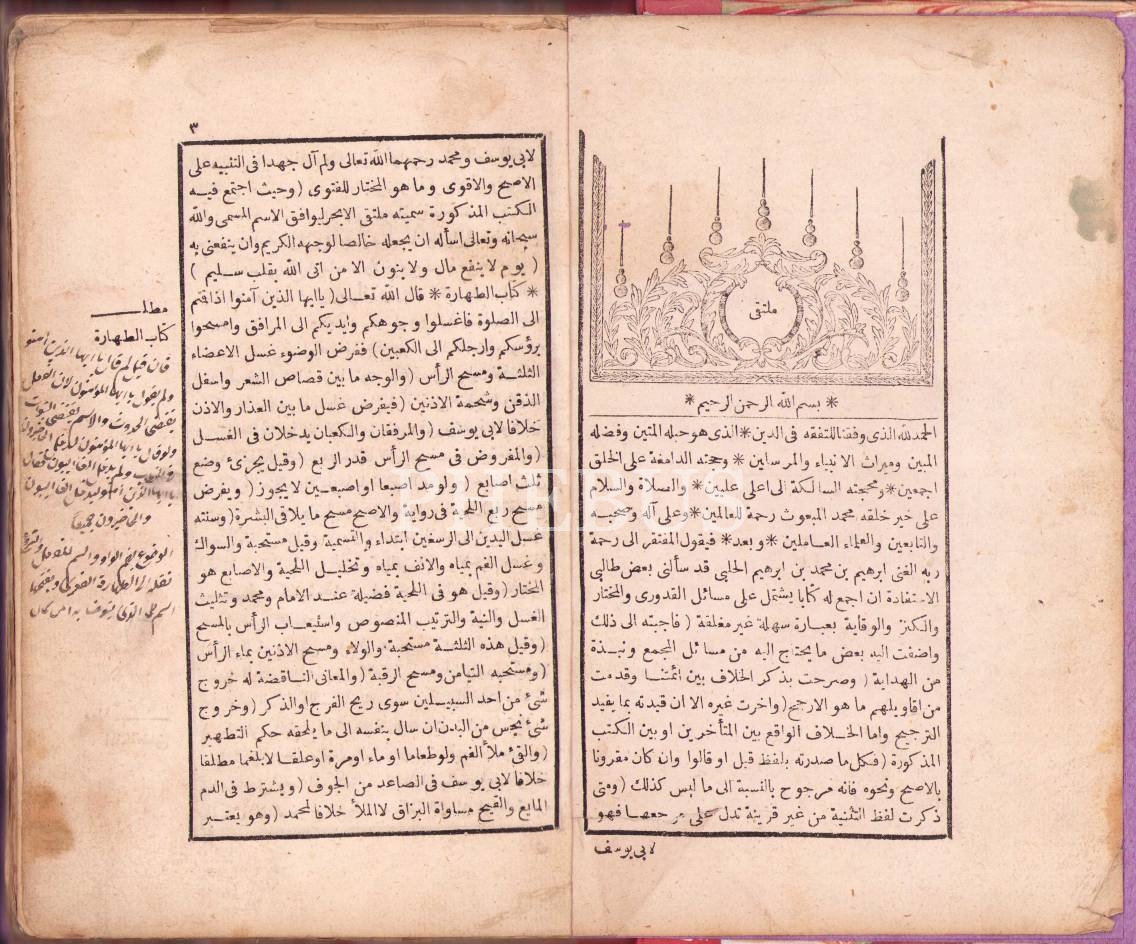 ملتقى
* بسم الله الرحمن الرحيم *
الحمد لله الذى وفقنا للتفقه فى الدين * الذى هو حبله المتين وفضله
المبين وميراث الانبياء والمرسلين * وحجته الدامغة على الخلق
اجمعين * ومحجته السالكة الى اعلى عليين * والصلاة والسلام
على خير خلقه محمد المبعوث رحمة للعالمين * وعلى آله وصحبه
والتابعين والعلماء العاملين * وبعد * فيقول المفتقر الى رحمة
ربه الغنى ابرهيم بن محمد بن ابرهيم الحلبى قد سألنى بعض طالبى
الاستفادة ان اجمع له كتابا يشتمل على مسائل القدورى والمختار
والكنز والوقاية بعبارة سهلة غير مغلقة ( فاجبته الى ذلك
واضفت اليه بعض ما يحتاج اليه من مسائل المجمع ونبذة
من الهداية ( وصرحت بذكر الخلاف بين ائمتنا وقدمت
من اقاويلهم ما هو الارجح ( واخرت غيره الا ان قيدته بما يفيد
الترجيح واما الخلاف الواقع بين المتأخرين او بين الكتب
المذكورة ( فكل ما صدرته بلفظ قيل او قالوا وان كان مقرونا
بالاصح ونحوه فانه مرجوح بالنسبة الى ما ليس كذلك ( ومتى
ذكرت لفظ التثنية من غير قرينة تدل على مرجعها فهو
لابى يوسف
٣
لابى يوسف ومحمد رحمهما الله تعالى ولم آل جهدا فى التنبيه على
الاصح والاقوى وما هو المختار للفتوى ( وحيث اجتمع فيه
الكتب المذكورة سميته ملتقى الابحر ليوافق الاسم المسمى والله
سبحانه وتعالى اسأله ان يجعله خالصا لوجهه الكريم وان ينفعنى به
( يوم لا ينفع مال ولا بنون الا من اتى الله بقلب سليم )
* كتاب الطهارة * قال الله تعالى ( ياايها الذين آمنوا اذا قمتم
الى الصلوة فاغسلوا وجوهكم وايديكم الى المرافق وامسحوا
برؤسكم وارجلكم الى الكعبين ) ففرض الوضوء غسل الاعضاء
الثلثة ومسح الرأس ( والوجه ما بين قصاص الشعر واسفل
الذقن وشحمة الاذنين ( فيفرض غسل ما بين العذار والاذن
خلافا لابى يوسف ( والمرفقان والكعبان يدخلان فى الغسل
( والمفروض فى مسح الرأس قدر الربع ( وقيل يجزئ وضع
ثلث اصابع ( ولو مد اصبعا او اصبعين لا يجوز ( ويفرض
مسح ربع اللحية فى رواية والاصح مسح ما يلاقى البشرة ( وسنته
غسل اليدين الى الرسغين ابتداء والتسمية وقيل مستحبة والسواك
وغسل الفم بمياه والانف بمياه وتخليل اللحية والاصابع هو
المختار ( وقيل هو فى اللحية فضيلة عند الامام ومحمد وتثليث
الغسل والنية والترتيب المنصوص واستيعاب الرأس بالمسح
( وقيل هذه الثلثة مستحبة والولاء ومسح الاذنين بماء الرأس
( ومستحبه التيامن ومسح الرقبة ( والمعانى الناقضة له خروج
شئ من احد السبيلين سوى ريح الفرج او الذكر ( وخروج
شئ نجس من البدن ان سال بنفسه الى ما يلحقه حكم التطهير
( والقئ ملأ الفم ولو طعاما او ماء او مرة او علقا لا بلغما مطلقا
خلافا لابى يوسف فى الصاعد من الجوف ( ويشترط فى الدم
المايع والقيح مساواة البزاق لا الملأ خلافا لمحمد ( وهو يعتبر
مطلب
كتاب الطهارة
فان قيل لم قال يا ايها الذين آمنوا
ولم يقول يا ايها المؤمنون لان الفعل
يقتضى الحدوث والاسم يقتضى الثبوت
PHEBUS